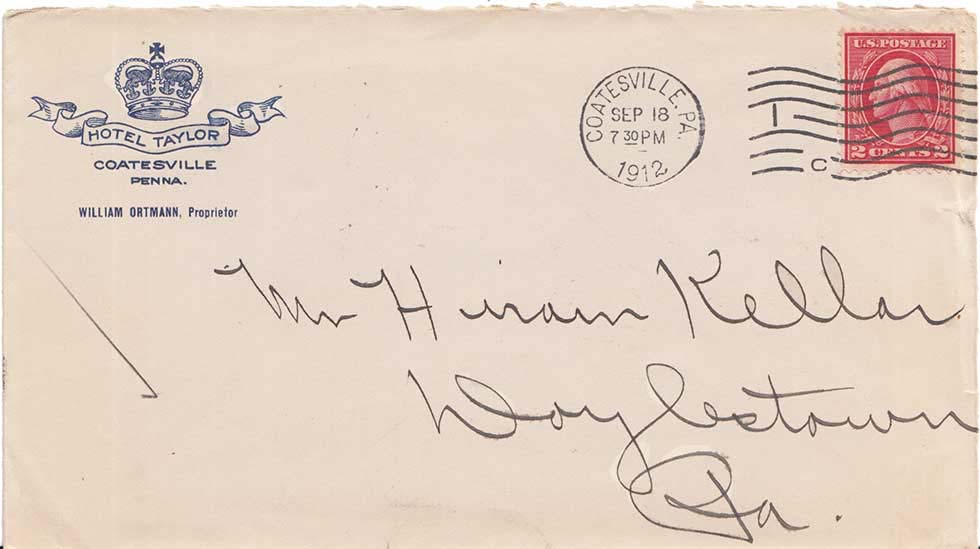 HOTEL TAYLOR
COATESVILLE
PENNA.
WILLIAM ORTMANN, Proprietor
COATESVILLE, PA.
SEP 18
7 30 PM
1912
C
U.S. POSTAGE
2 CENTS 2
Mr Hiram Kellar
Doylestown
Pa.